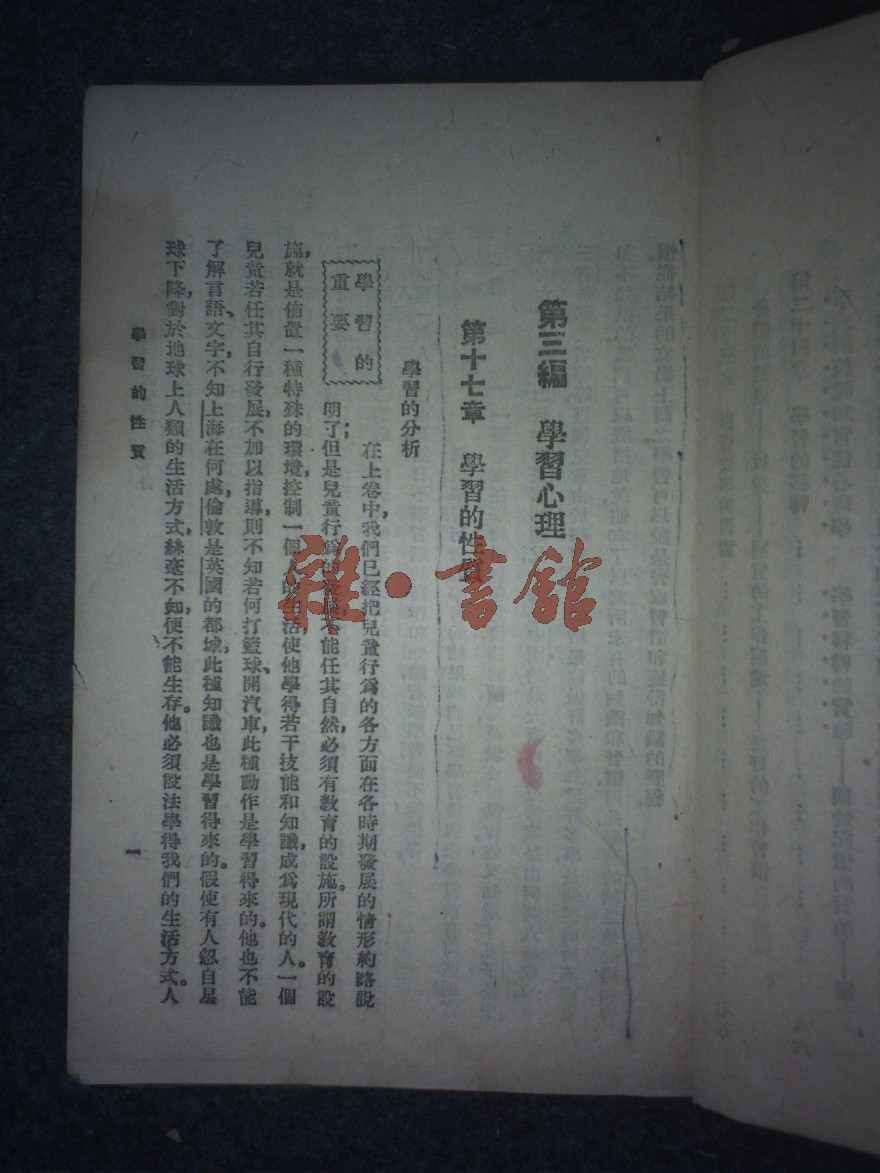 第三編　學習心理
第十七章　學習的性質
學習的分析
學習的
重要
在上卷中，我們已經把兒童行爲的各方面在各時期發展的情形約略說
明了；但是兒童行爲的發展，不能任其自然，必須有教育的設施。所謂教育的設
施，就是佈置一種特殊的環境，控制一個人的生活，使他學得若干技能和知識，成爲現代的人。一個
兒童若任其自行發展，不加以指導，則不知若何打籃球、開汽車，此種動作是學習得來的。他也不能
了解言語、文字，不知上海在何處，倫敦是英國的都城，此種知識也是學習得來的。假使有人忽自星
球下降，對於地球上人類的生活方式，絲毫不知，便不能生存。他必須設法學得我們的生活方式。人
學習的性質
一
雜·書館